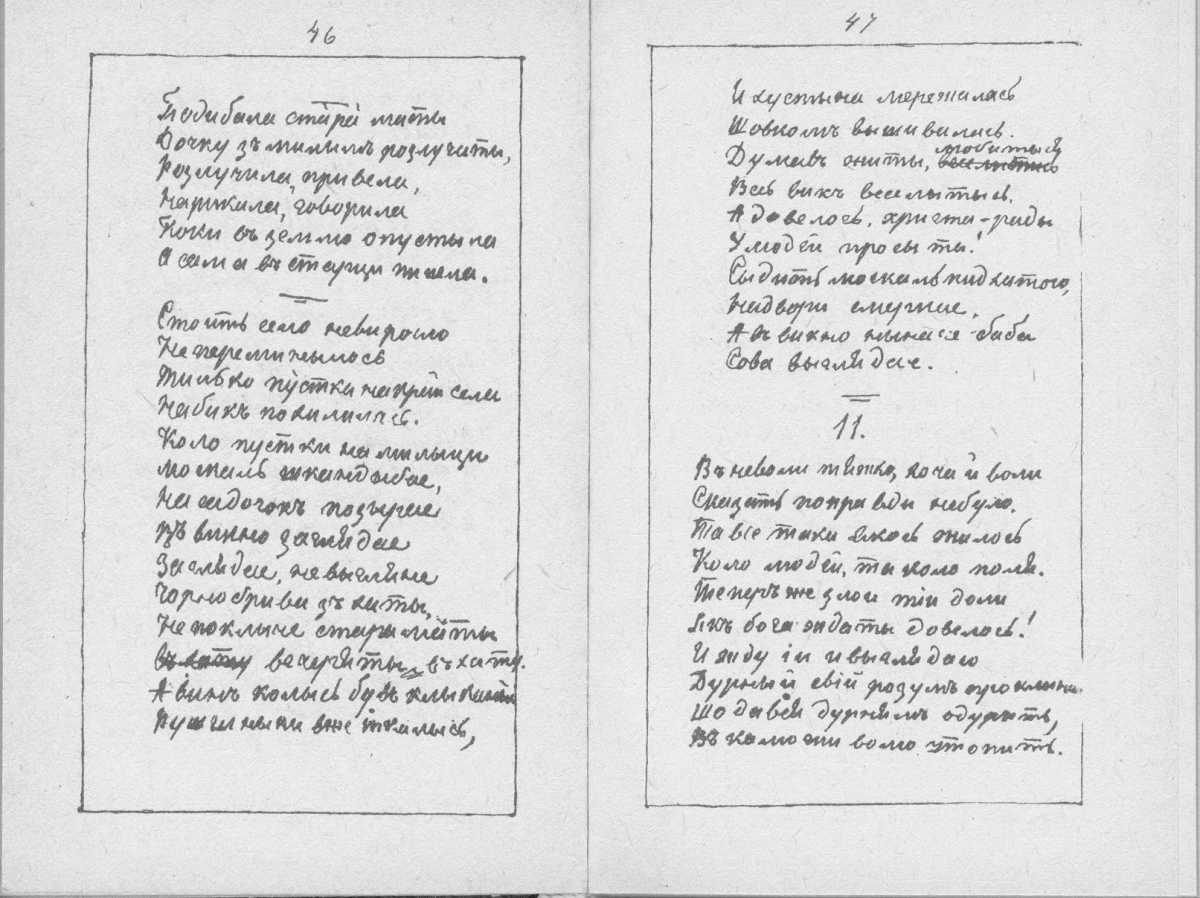 46
Подибала стара мати
Дочку зъ милымъ розлучити,
Розлучила, привела,
Наржкала, говорила
Поки въ землю опустыла
А сама въ старци пишла.
Стоить село невиросло
Непереминылось
Тилько пустка накраи села
Набикъ похилилась.
Коло пустки на милыци
Москаль шкандыбае,
На садочокъ позырае
Въ викно заглядае
Заглядае, невыгляне
Чорнобрива зъ хаты,
Непокличе стара маты
въ хатну вечеряты въ хату.
А винъ колысь бувъ клыканый
Рушныкы вже ткалысь,
47
И хустына мережилась
Шовкомъ вышивалась.
Думавъ житы, любитысь веселитись
Весь викъ веселытысь.
А довелось, христа-ради
У людей просыты!
Сыдить москаль пидхатою,
Надвори смеркае.
А въ викно ныначе баба
Сова выглядае.
11.
Въ неволи тяжко, хоча й воли
Сказать поправди небуло.
Та все таки якось жилось
Коло людей, та коло поля.
Теперъ же злои тіи доли
Якъ бога ждаты довелось!
И жду іи и выглядаю
Дурный свій розумъ проклинаю
Шо давсь дурнямъ одурить,
Въ калюжи волю утопить.